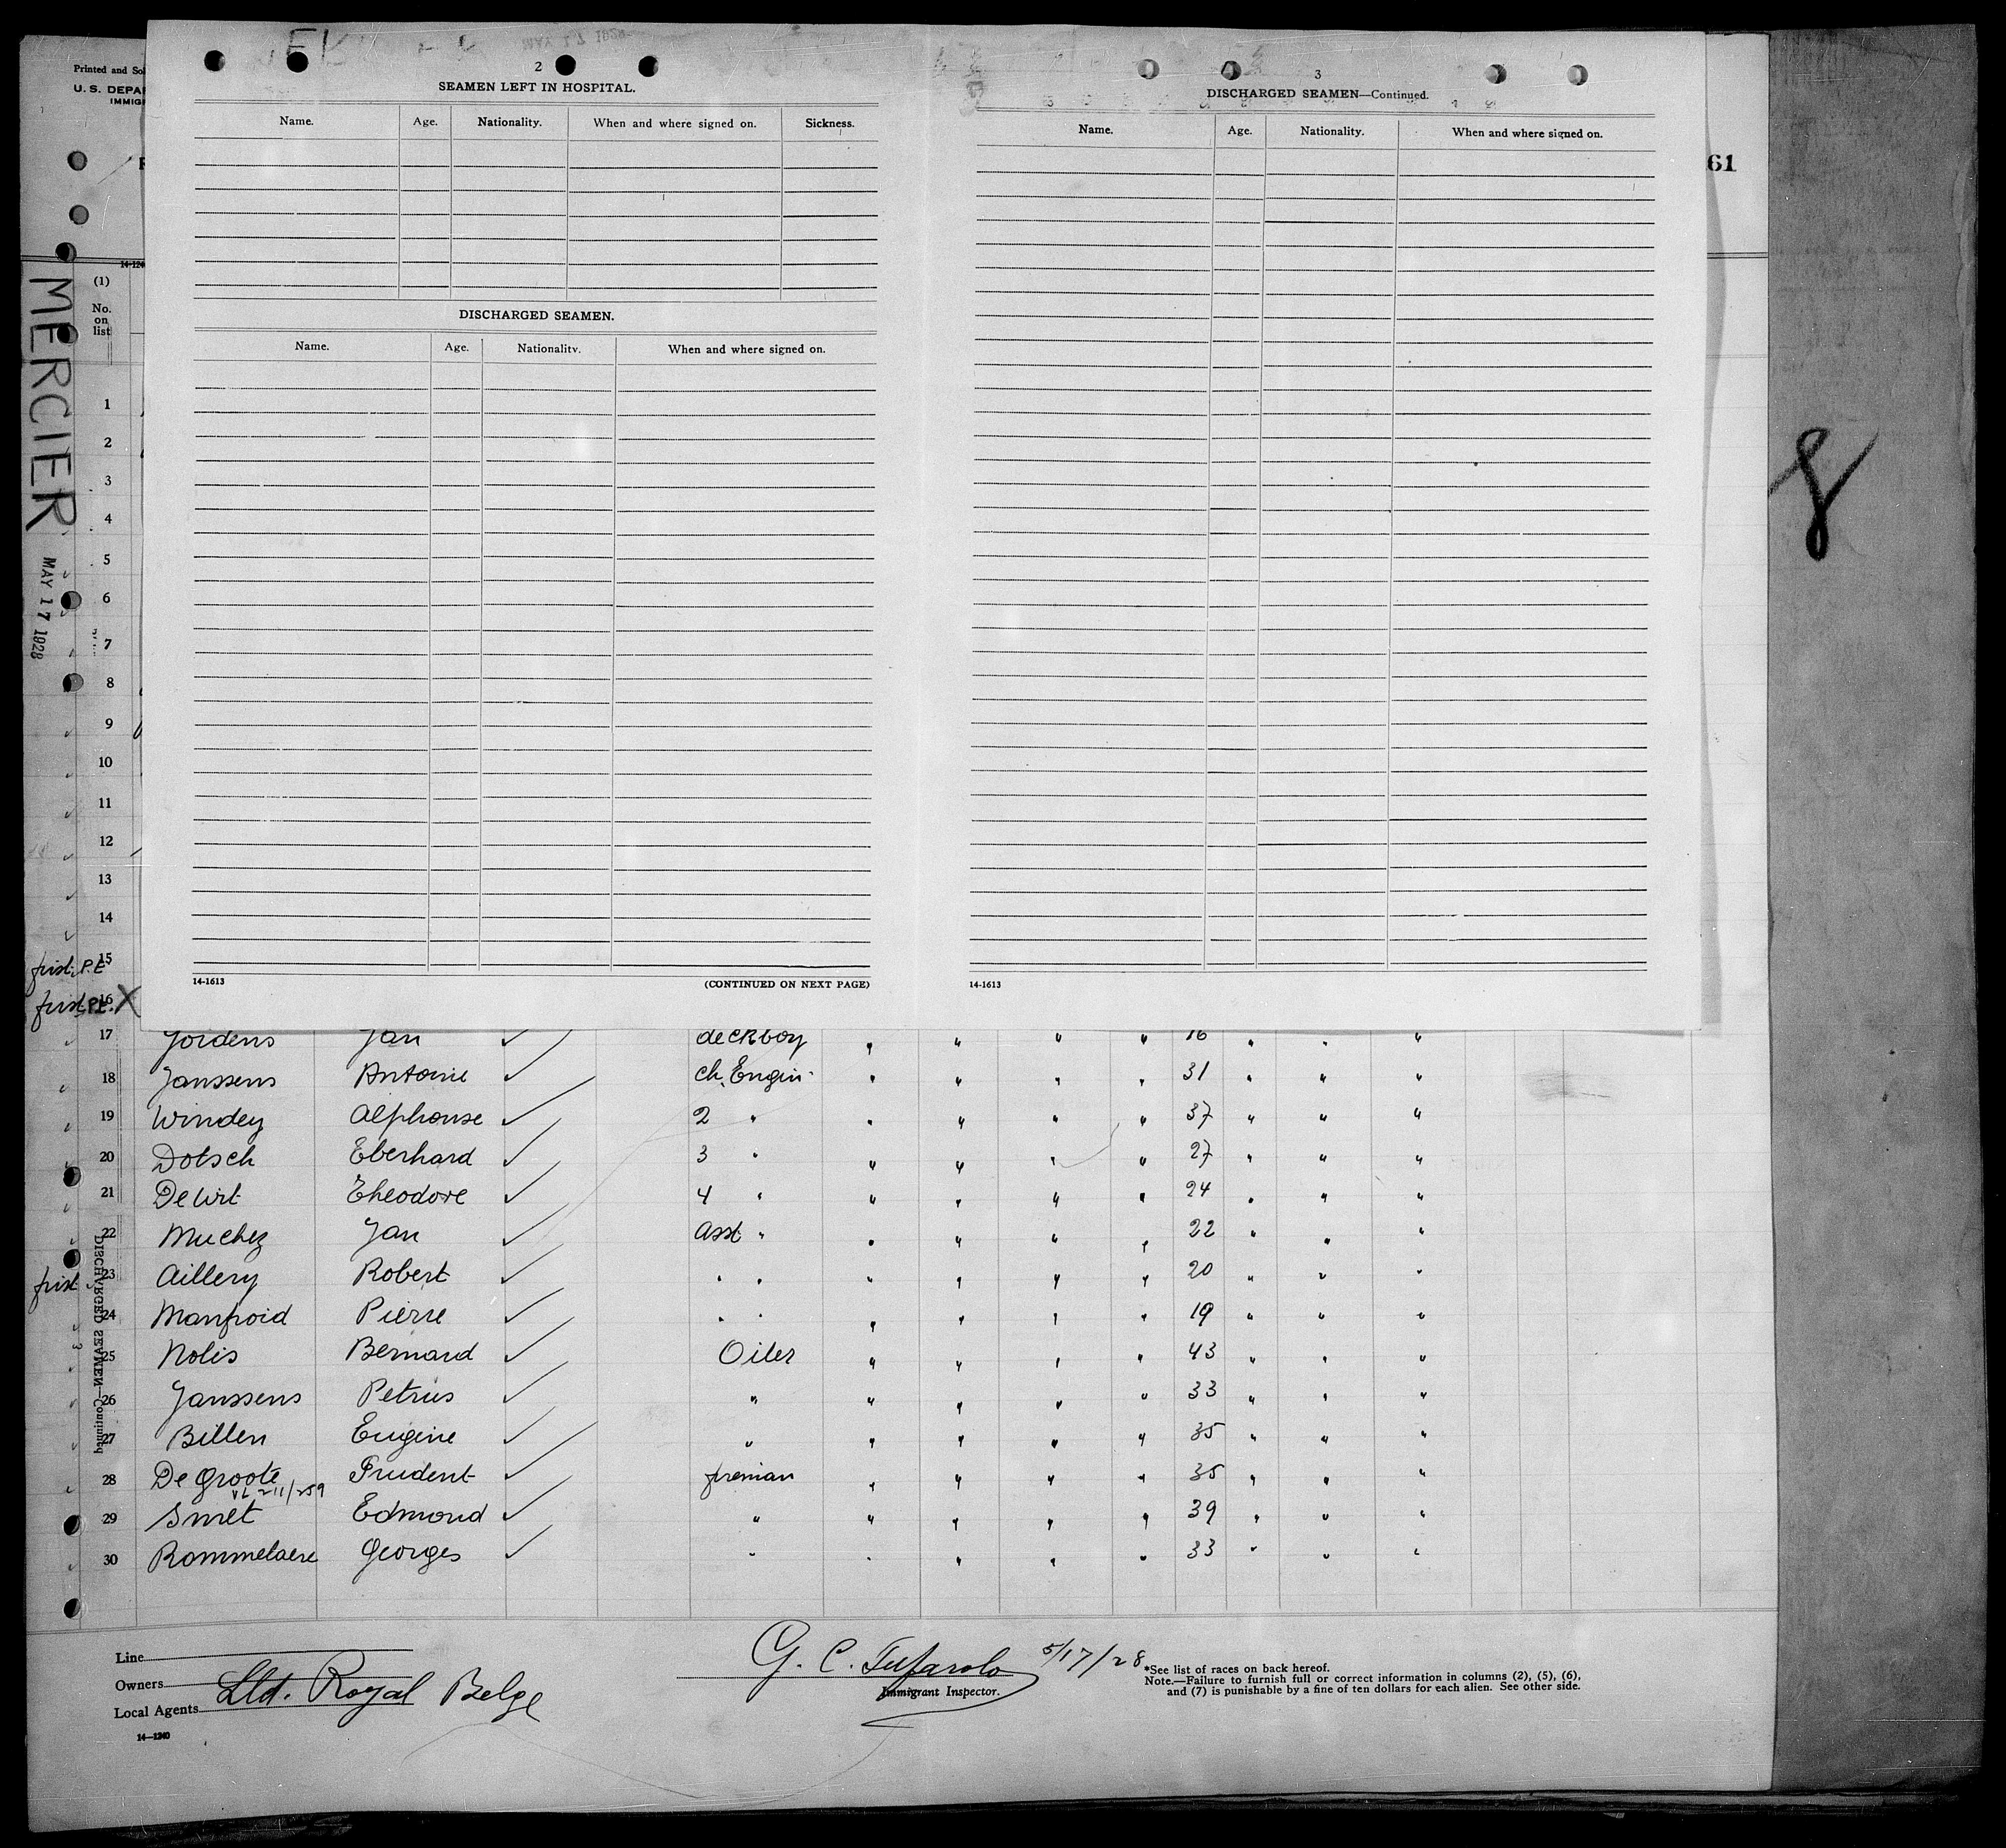 Printed and Sol
U. S. DEPA
IMMIG
61
14-124
(1)
No.
on
list
MERCIER
MAY 17 1928
2
SEAMEN LEFT IN HOSPITAL.
Name. Age. Nationality. When and where signed on. Sickness.
DISCHARGED SEAMEN.
Name. Age. Nationality. When and where signed on.
14-1613 (CONTINUED ON NEXT PAGE)
3
DISCHARGED SEAMEN—Continued.
Name. Age. Nationality. When and where signed on.
14-1613
8
1
2
3
4
5
6
7
8
9
10
11
12
13
14
first P.E 15
first P.E. 16 X
17 Jordens Jan ✓ deckboy " " " " 16 " " "
18 Janssens Antoine ✓ Ch. Engin. " " " " 31 " " "
19 Windey Alphonse ✓ 2 " " " " " 37 " " "
20 Dotsch Eberhard ✓ 3 " " " " " 27 " " "
21 De Wit Theodore ✓ 4 " " " " " 24 " " "
22 Muchez Jan ✓ asst " " " " " 22 " " "
first 23 Aillery Robert ✓ " " " " " " 20 " " "
24 Manfroid Pierre ✓ " " " " " " 19 " " "
25 Nolis Bernard ✓ Oiler " " " " 43 " " "
26 Janssens Petrus ✓ " " " " " 33 " " "
27 Billen Eugine ✓ " " " " " 35 " " "
28 De Groote Prudent ✓ fireman " " " " 35 " " "
VL 211/259
29 Smet Edmond ✓ " " " " " 39 " " "
30 Rommelaere Georges ✓ " " " " " 33 " " "
DISCHARGED SEAMEN—Continued
3
Line
Owners
Local Agents Lld. Royal Belge
14—1240
G. C. Tufarolo 5/17/28
Immigrant Inspector.
*See list of races on back hereof.
Note.—Failure to furnish full or correct information in columns (2), (5), (6),
and (7) is punishable by a fine of ten dollars for each alien. See other side.